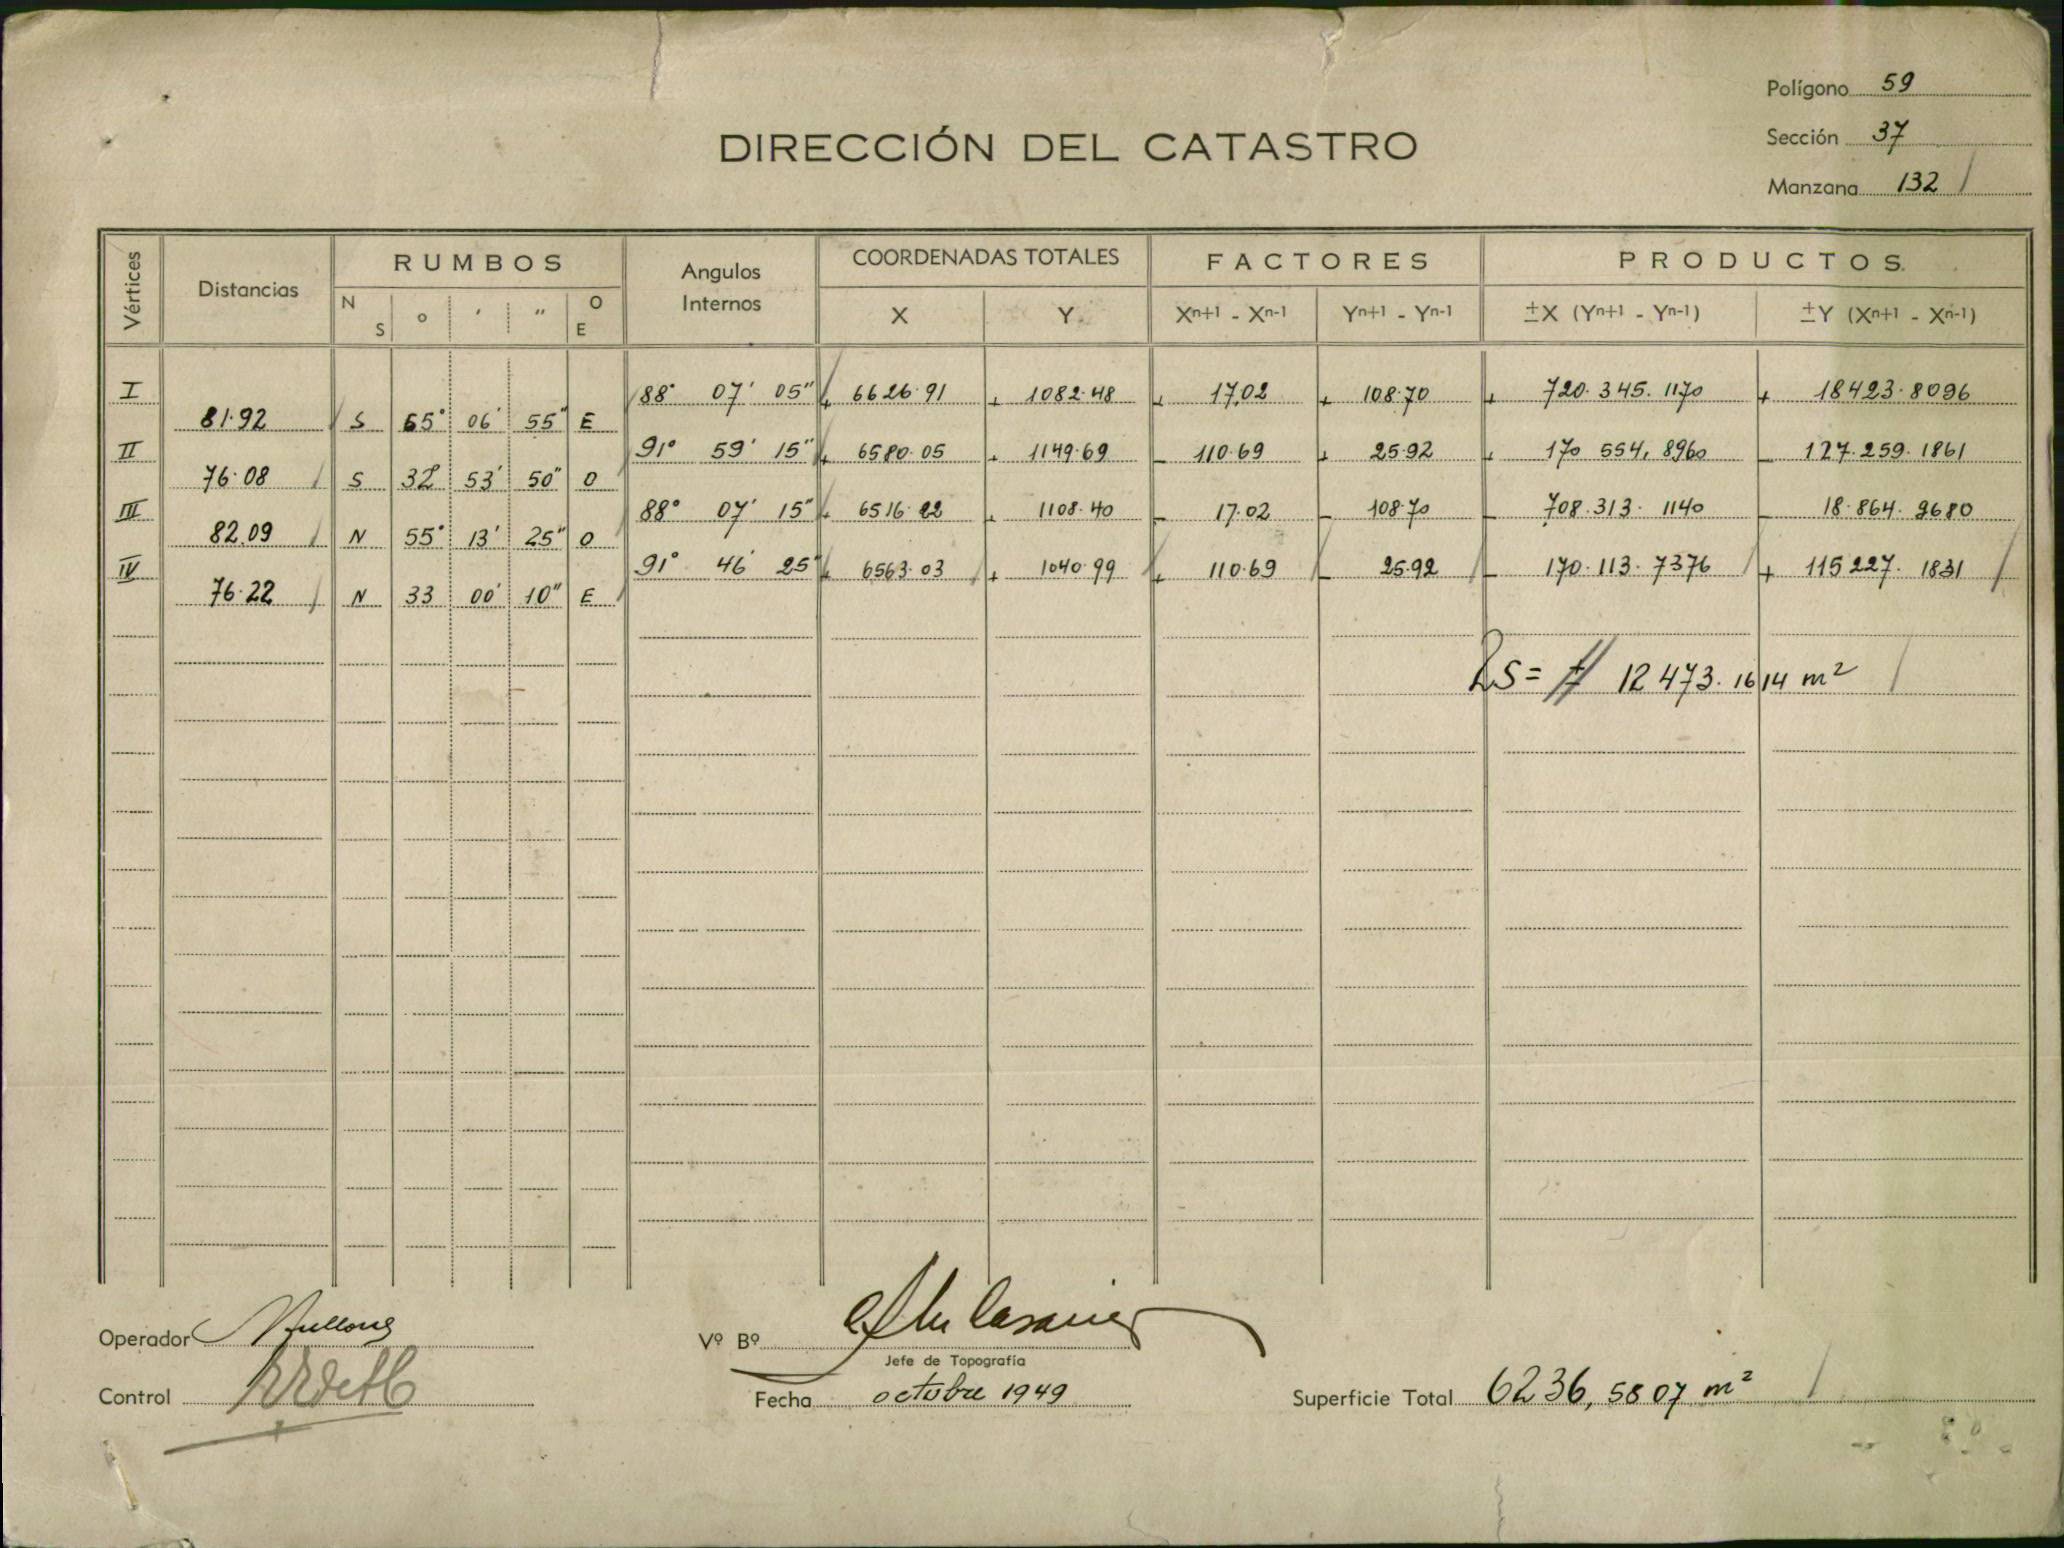 Polígono 59
DIRECCIÓN DEL CATASTRO
Sección 37
Manzana 132
Vértices Distancias RUMBOS Angulos Internos COORDENADAS TOTALES FACTORES PRODUCTOS.
N S o ' " O E X Y Xn+1 - Xn-1 Yn+1 - Yn-1 ±X (Yn+1 - Yn-1) ±Y (Xn+1 - Xn-1)
I 88° 07' 05" + 6626.91 + 1082.48 + 17.02 + 108.70 + 720.345.1170 + 18423.8096
81.92 S 55° 06' 55" E
II 91° 59' 15" + 6580.05 + 1149.69 - 110.69 + 25.92 + 170 554, 8960 - 127.259.1861
76.08 S 32° 53' 50" O
III 88° 07' 15" + 6516.22 + 1108.40 - 17.02 - 108.70 - 708.313.1140 - 18.864.9680
82.09 N 55° 13' 25" O
IV 91° 46' 25" + 6563.03 + 1040.99 + 110.69 - 25.92 - 170.113.7376 + 115 227.1831
76.22 N 33 00' 10" E
2S = + 12 473.1614 m²
Operador
Vº Bº
Jefe de Topografía
Control
Fecha octubre 1949
Superficie Total 6236,5807 m²